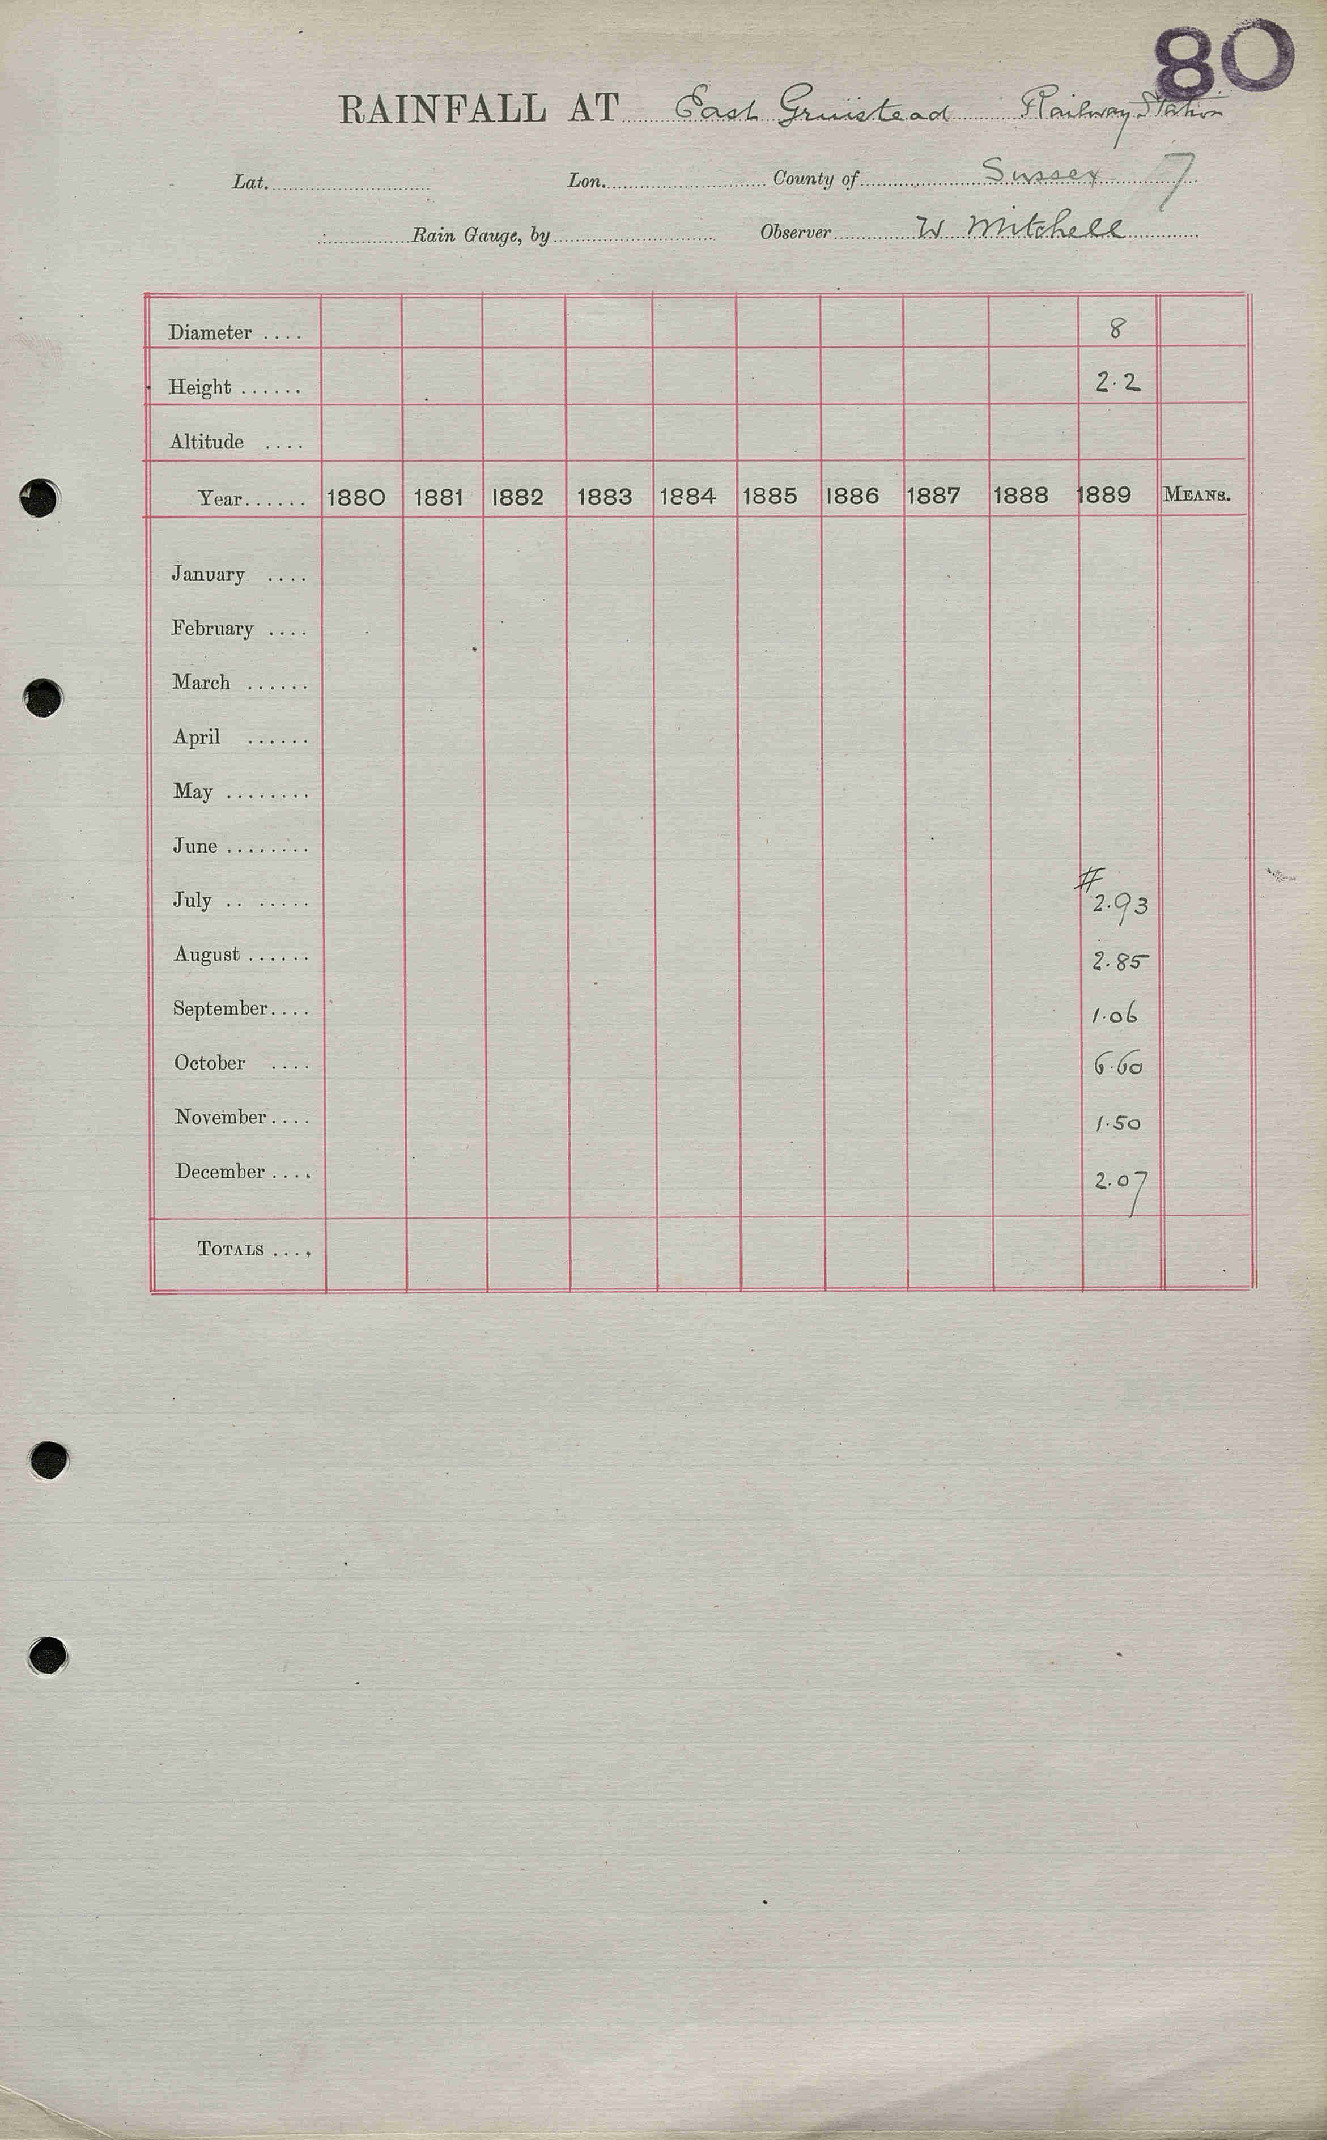 80
RAINFALL AT East Grinstead Railway Station
Lat. Lon. County of Sussex 7
Rain Gauge, by Observer W Mitchell
Diameter .... 8
Height ...... 2.2
Altitude ....
Year...... 1880 1881 1882 1883 1884 1885 1886 1887 1888 1889 MEANS.
January ....
February ....
March ......
April ......
May ........
June ........
July .. ...... # 2.93
August ...... 2.85
September.... 1.06
October .... 6.60
November.... 1.50
December .... 2.07
TOTALS ....